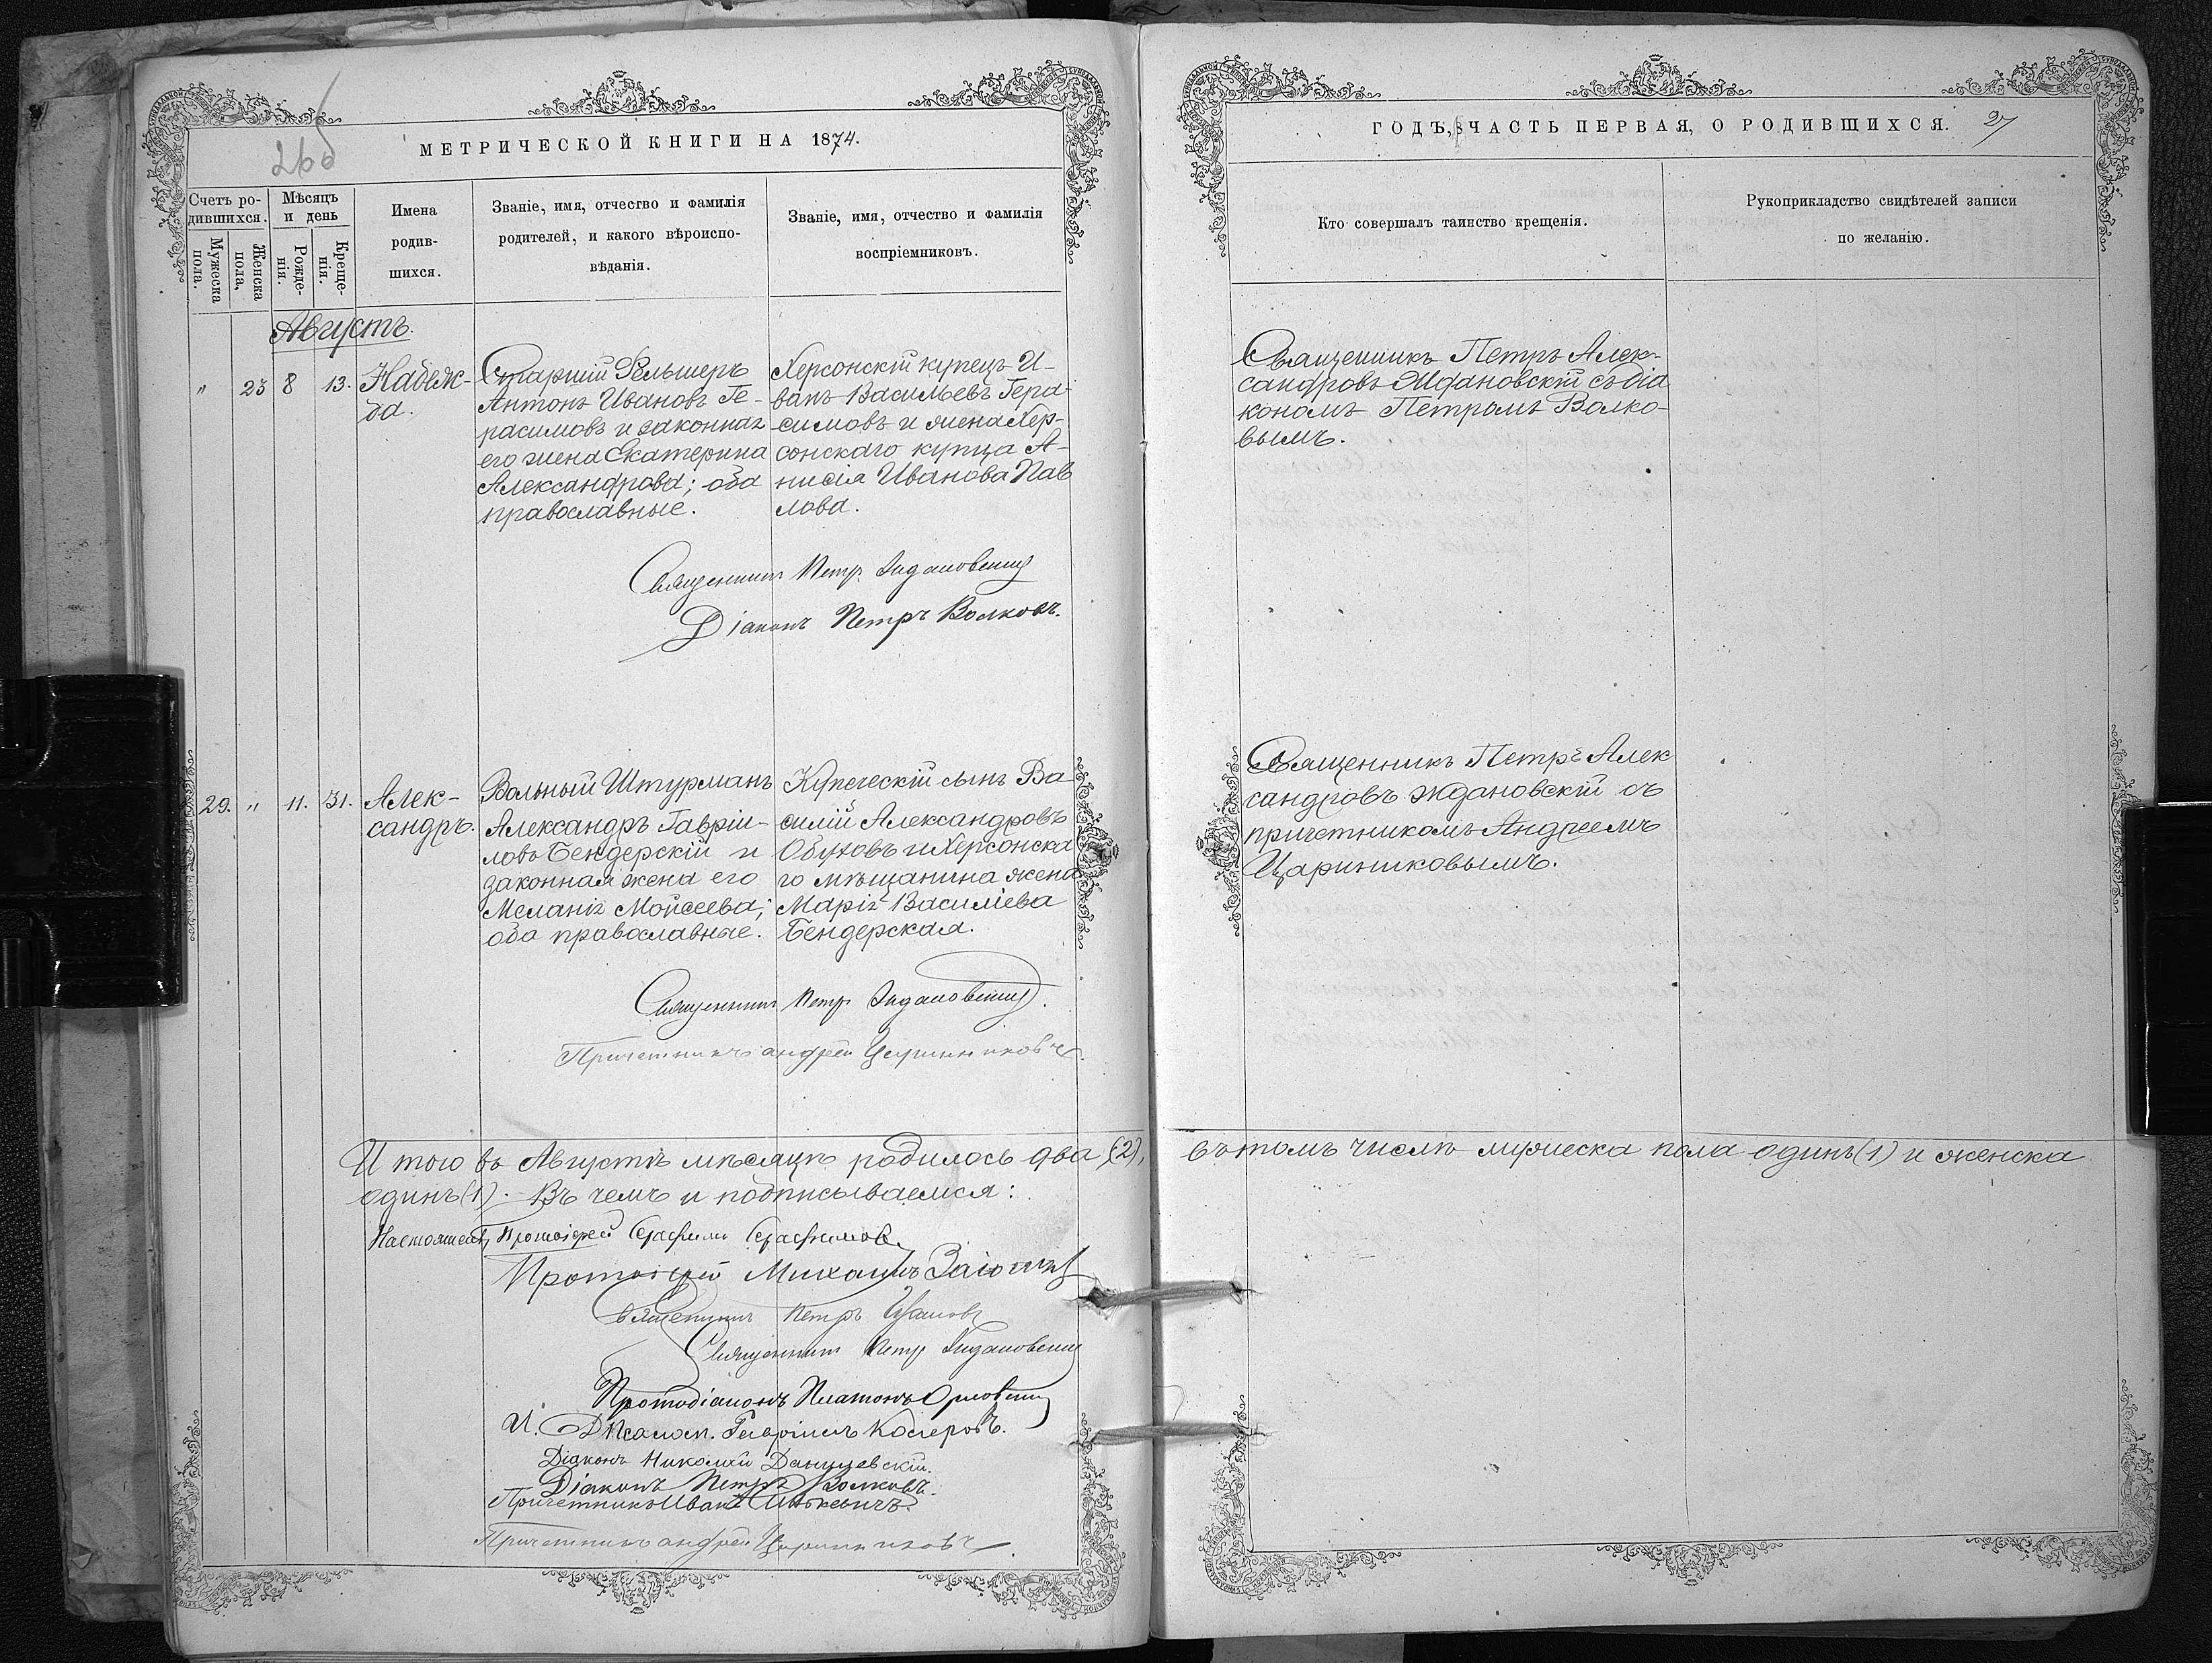 26б
МЕТРИЧЕСКОЙ КНИГИ НА 1874.
Счетъ ро-
дившихся.
Мужеска
пола.
Женска
пола,
Мѣсяцъ
и день
Рожде-
нія.
Креще-
нія.
Имена
родив-
шихся.
Званіе, имя, отчество и фамилія
родителей, и какого вѣроиспо-
вѣданія.
Званіе, имя, отчество и фамилія
воспріемниковъ.
Августъ.
" 23 8 13.
Надеж-
да.
Старшій Фельшеръ
Антонъ Ивановъ Ге-
расимовъ и законная
его жена Екатерина
Александрова; оба
православные.
Херсонскій купецъ И-
ванъ Васильевъ Гера-
симовъ и жена Хер-
сонскаго купца А-
нисія Иванова Пав
лова.
Священникъ Петр. Ждановскій
Діаконъ Петръ Волковъ.
29. " 11. 31.
Алек-
сандръ.
Вольный Штурманъ
Александръ Гавріи-
ловъ Бендерскій и
законная жена его
Меланія Мойсеева;
оба православные.
Купеческій сынъ Ва
силій Александровъ
Обуховъ и Херсонска
го мѣщанина жена
Марія Василіева
Бендерская.
Священникъ Петр. Ждановскій.
Причетникъ Андрей Цариниковъ
И того въ Августѣ мѣсяцѣ родилось два (2),
одинъ (1). Въ чемъ и подписываемся:
Настоятель, Протоіерей Серафимъ Серафимовъ
Протоіерей Михаилъ
Священникъ Петръ
Священникъ Петр Ждановскій
Протодіаконъ Платонъ Орловскій
И. Д. Псалом. Гавріилъ
Діаконъ Николай
Діаконъ Петръ Волковъ.
Причетникъ Иванъ
Причетникъ Андрей Цариниковъ.
ГОДЪ, ЧАСТЬ ПЕРВАЯ, О РОДИВШИХСЯ. 27
Кто совершалъ таинство крещенія.
Рукоприкладство свидѣтелей записи
по желанію.
Священникъ Петръ Алек-
сандровъ Ждановскій съ Діа
кономъ Петромъ Волко-
вымъ.
Священникъ Петръ Алек
сандровъ Ждановскій съ
причетникомъ Андреемъ
Цариниковымъ.
въ томъ числѣ мужеска пола одинъ (1) и женска